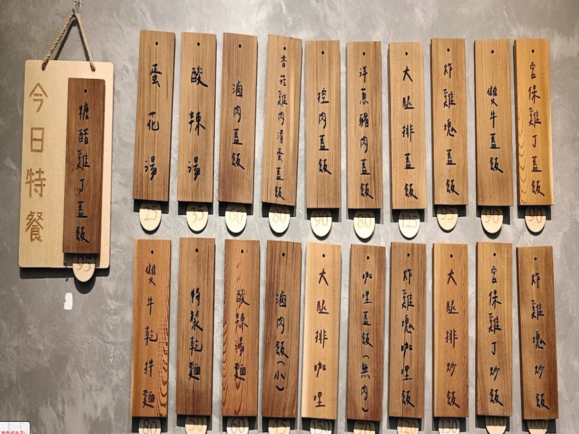 今日特餐
糖醋雞丁蓋飯
95
蛋花湯
25
酸辣湯
35
滷肉蓋飯
香菇雞肉滑蛋蓋飯
控肉蓋飯
洋蔥豬肉蓋飯
大腿排蓋飯
炸雞塊蓋飯
雙牛蓋飯
90
宮保雞丁蓋飯
90
雙牛乾拌麵
特製乾麵
酸辣湯麵
滷肉飯(小)
大腿排咖哩
咖哩蓋飯(無肉)
炸雞塊咖哩飯
大腿排炒飯
宮保雞丁炒飯
炸雞塊炒飯